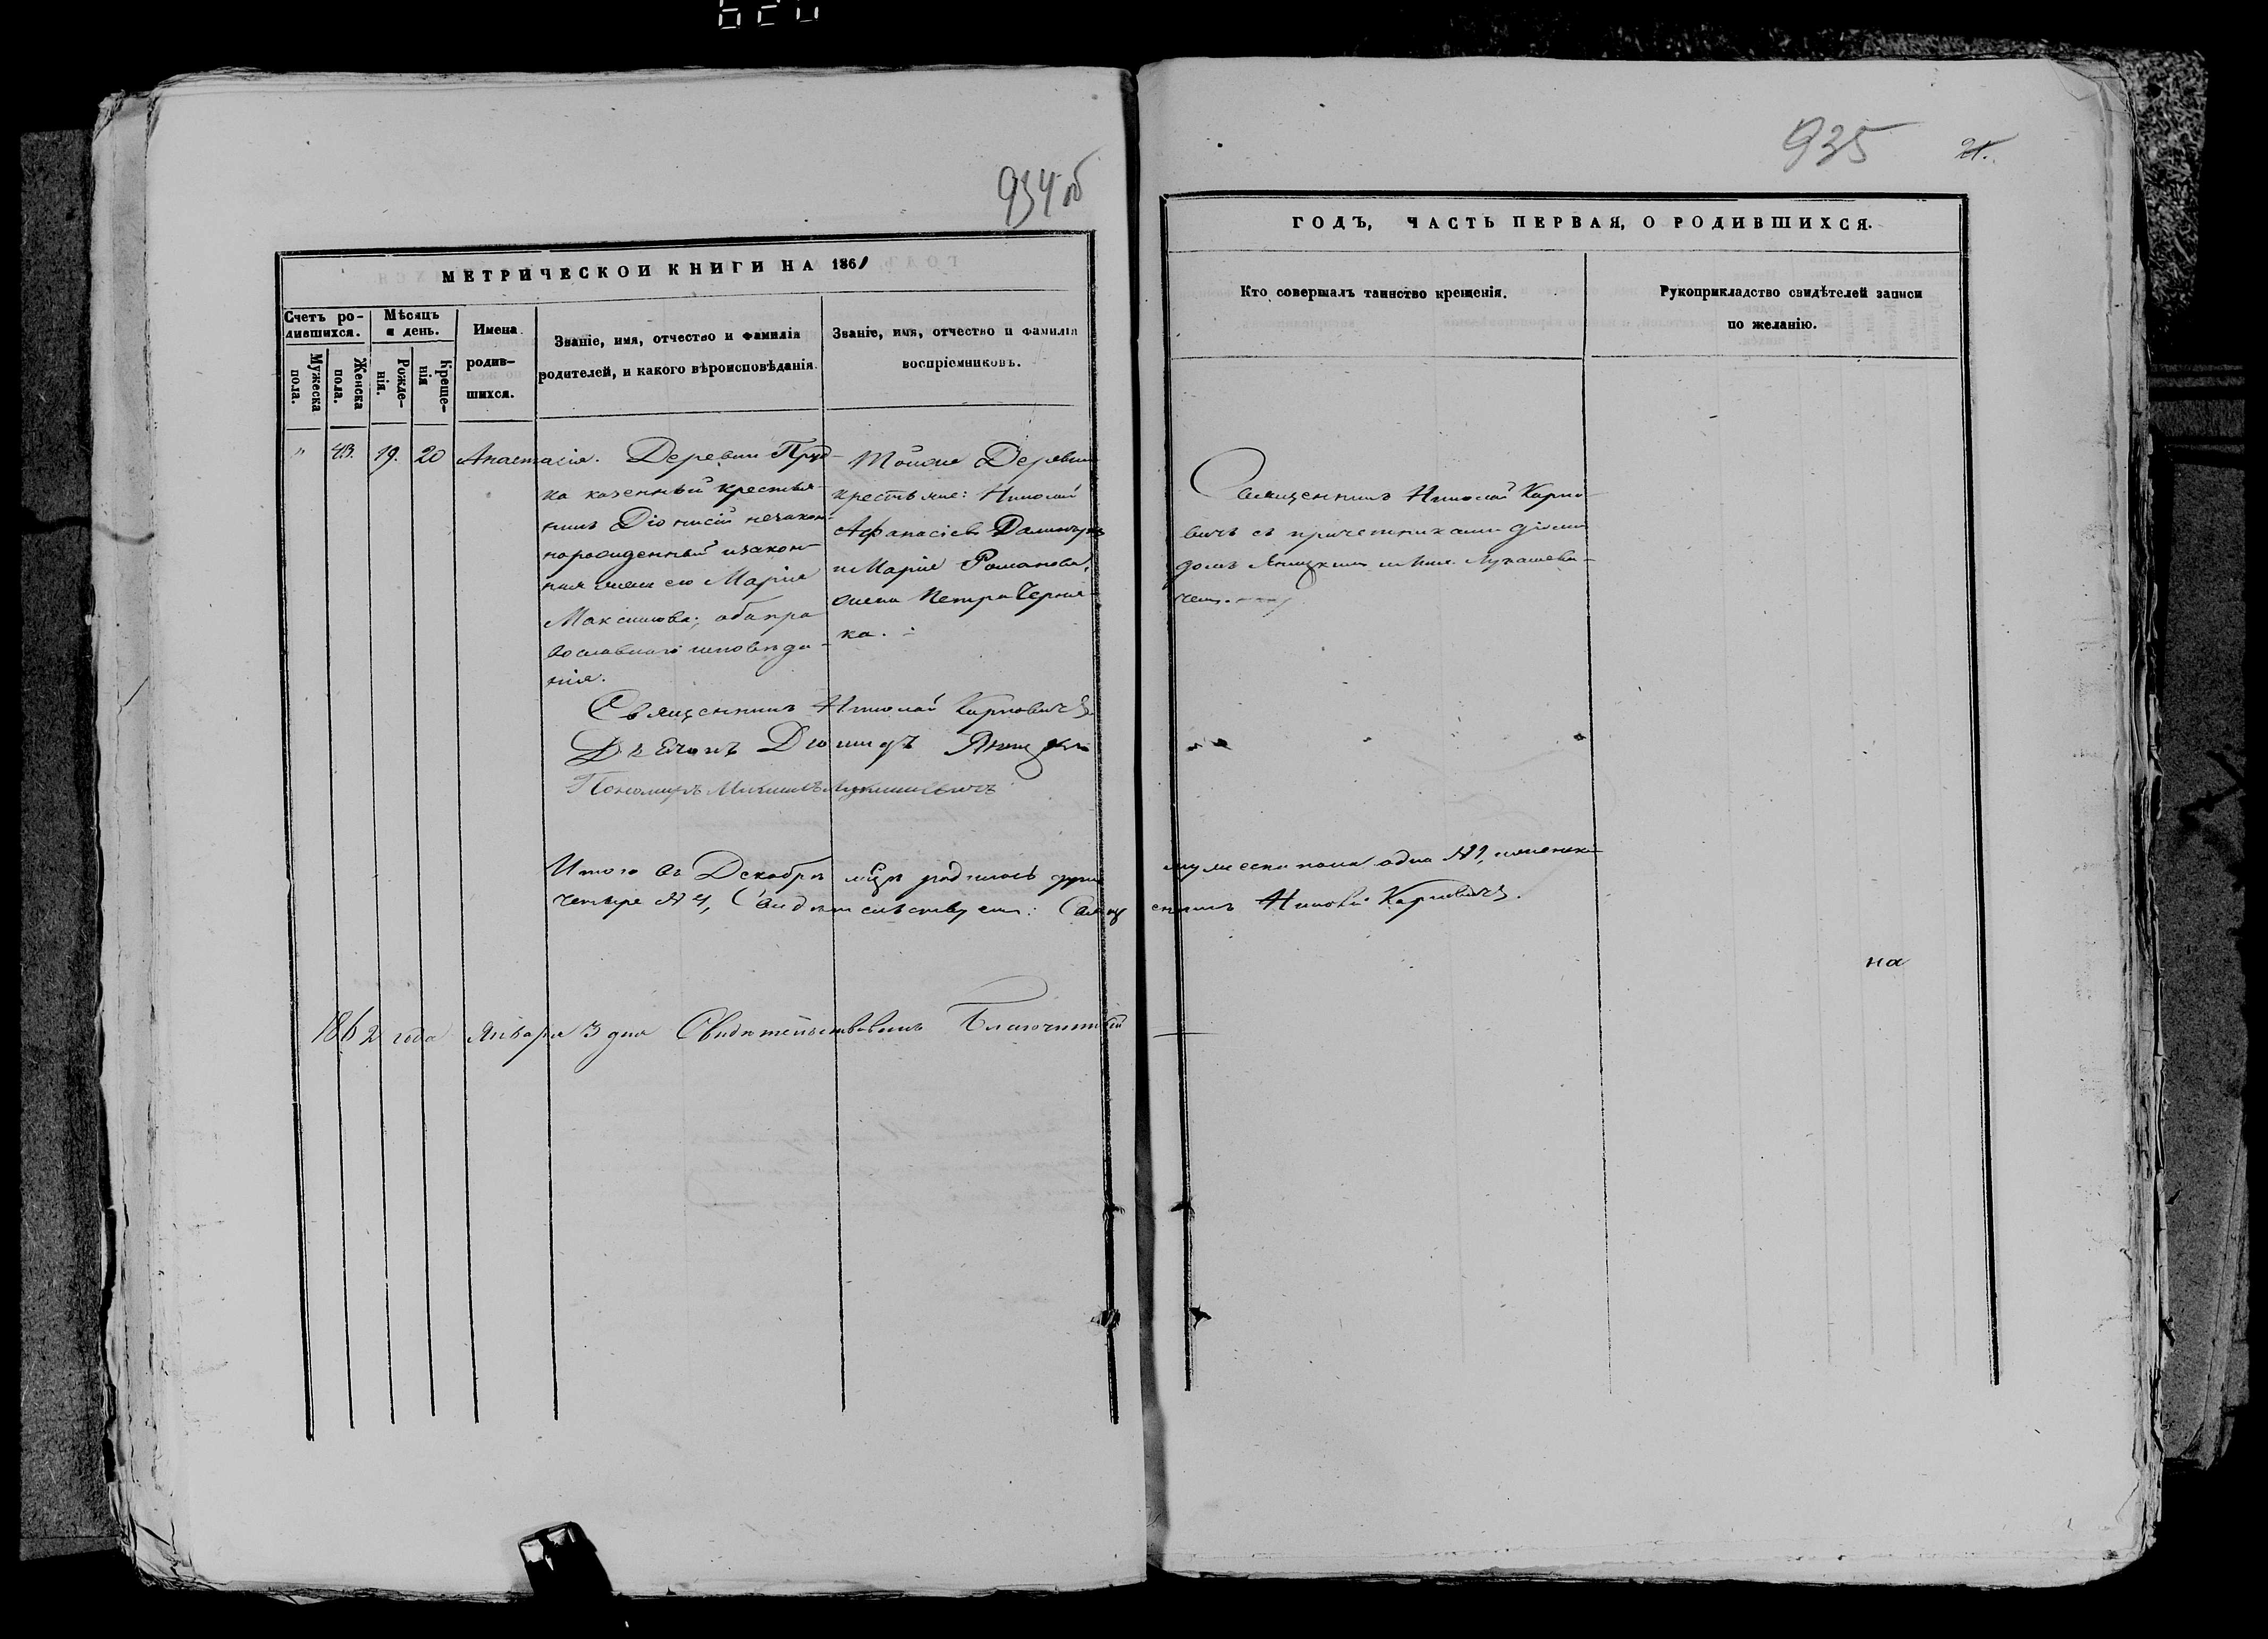 934 об
МЕТРИЧЕСКОЙ КНИГИ НА 1861
Счетъ ро-
дившихся.
Мужеска
пола.
Женска
пола.
Мѣсяцъ
и день.
Рожде-
нія.
Креще-
нія
Имена
родив-
шихся.
Званіе, имя, отчество и фамилія
родителей, и какого вѣроисповѣданія.
Званіе, имя, отчество и фамилія
воспріемниковъ.
" 43. 19. 20 Анастасія.
Деревни Пруд-
ка казенный крестья-
нинъ Діонисій незакон-
норожденный изакон-
ная жена его Марія
Максимова; оба пра
вославнаго исповѣда-
нія.
Тойже Деревни
крестьяне: Николай
Афанасіевъ
и Марія Романова,
жена Петра Черня-
ка.
Священникъ Николай Карповичъ
Діомидъ Яницкій
Пономарь Михаилъ Лукашевичъ
Итого въ Декабрѣ мцѣ родилось
четыре № 4, Свидѣтельствуетъ: Свящ
1862 года Января 3 дня Свидѣтельствовалъ Благочинный
935
21.
ГОДЪ, ЧАСТЬ ПЕРВАЯ, О РОДИВШИХСЯ.
Кто совершалъ таинство крещенія.
Рукоприкладство свидѣтелей записи
по желанію.
Священникъ Николай Карпо-
вичъ съ причетниками Діоми
домъ Яницкимъ и Мих. Лукашеви-
чемъ.
мужеска пола одна №1, иженска
енникъ Николай Карповичъ.
на